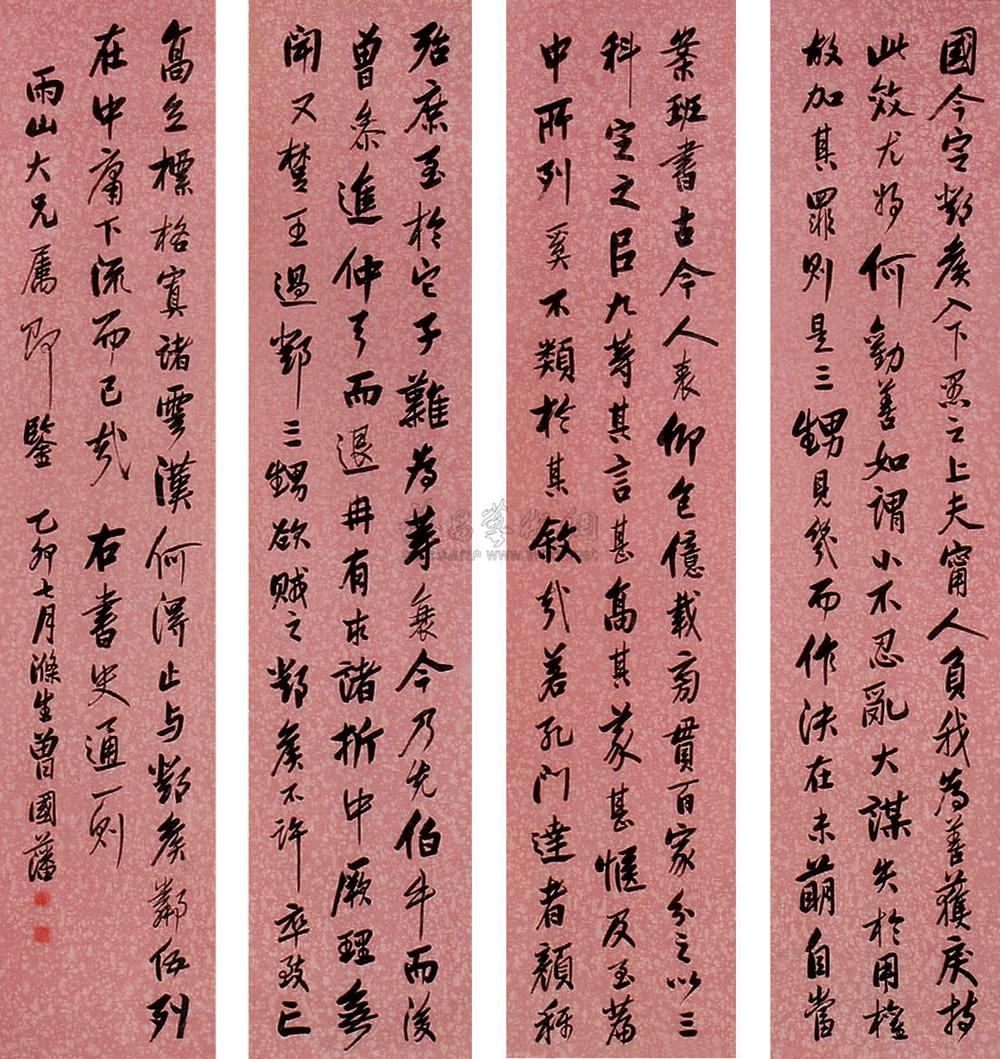 國今定鄧矦入下愚之上夫甯人負我為善獲戾持
此效尤將何勸善如謂小不忍亂大謀失於用權
故加其罪則是三甥見幾而作決在未萌自當
案班書古今人表仰包億載旁貫百家分之以三
科定之㠯九等其言甚高其義甚愜及至篇
中所列奚不類於其敘哉若孔門達者顏稱
殆庶至於它子難為等衰今乃先伯牛而後
曾參進仲弓而退冉有求諸折中厥理無
聞又楚王過鄧三甥欲賊之鄧矦不許卒致亡
高立標格寘諸雲漢何得止与鄧矦鄰伍列
在中庸下流而已哉 右書史通一則
雨山大兄屬即鑒 乙卯七月滌生曾國藩